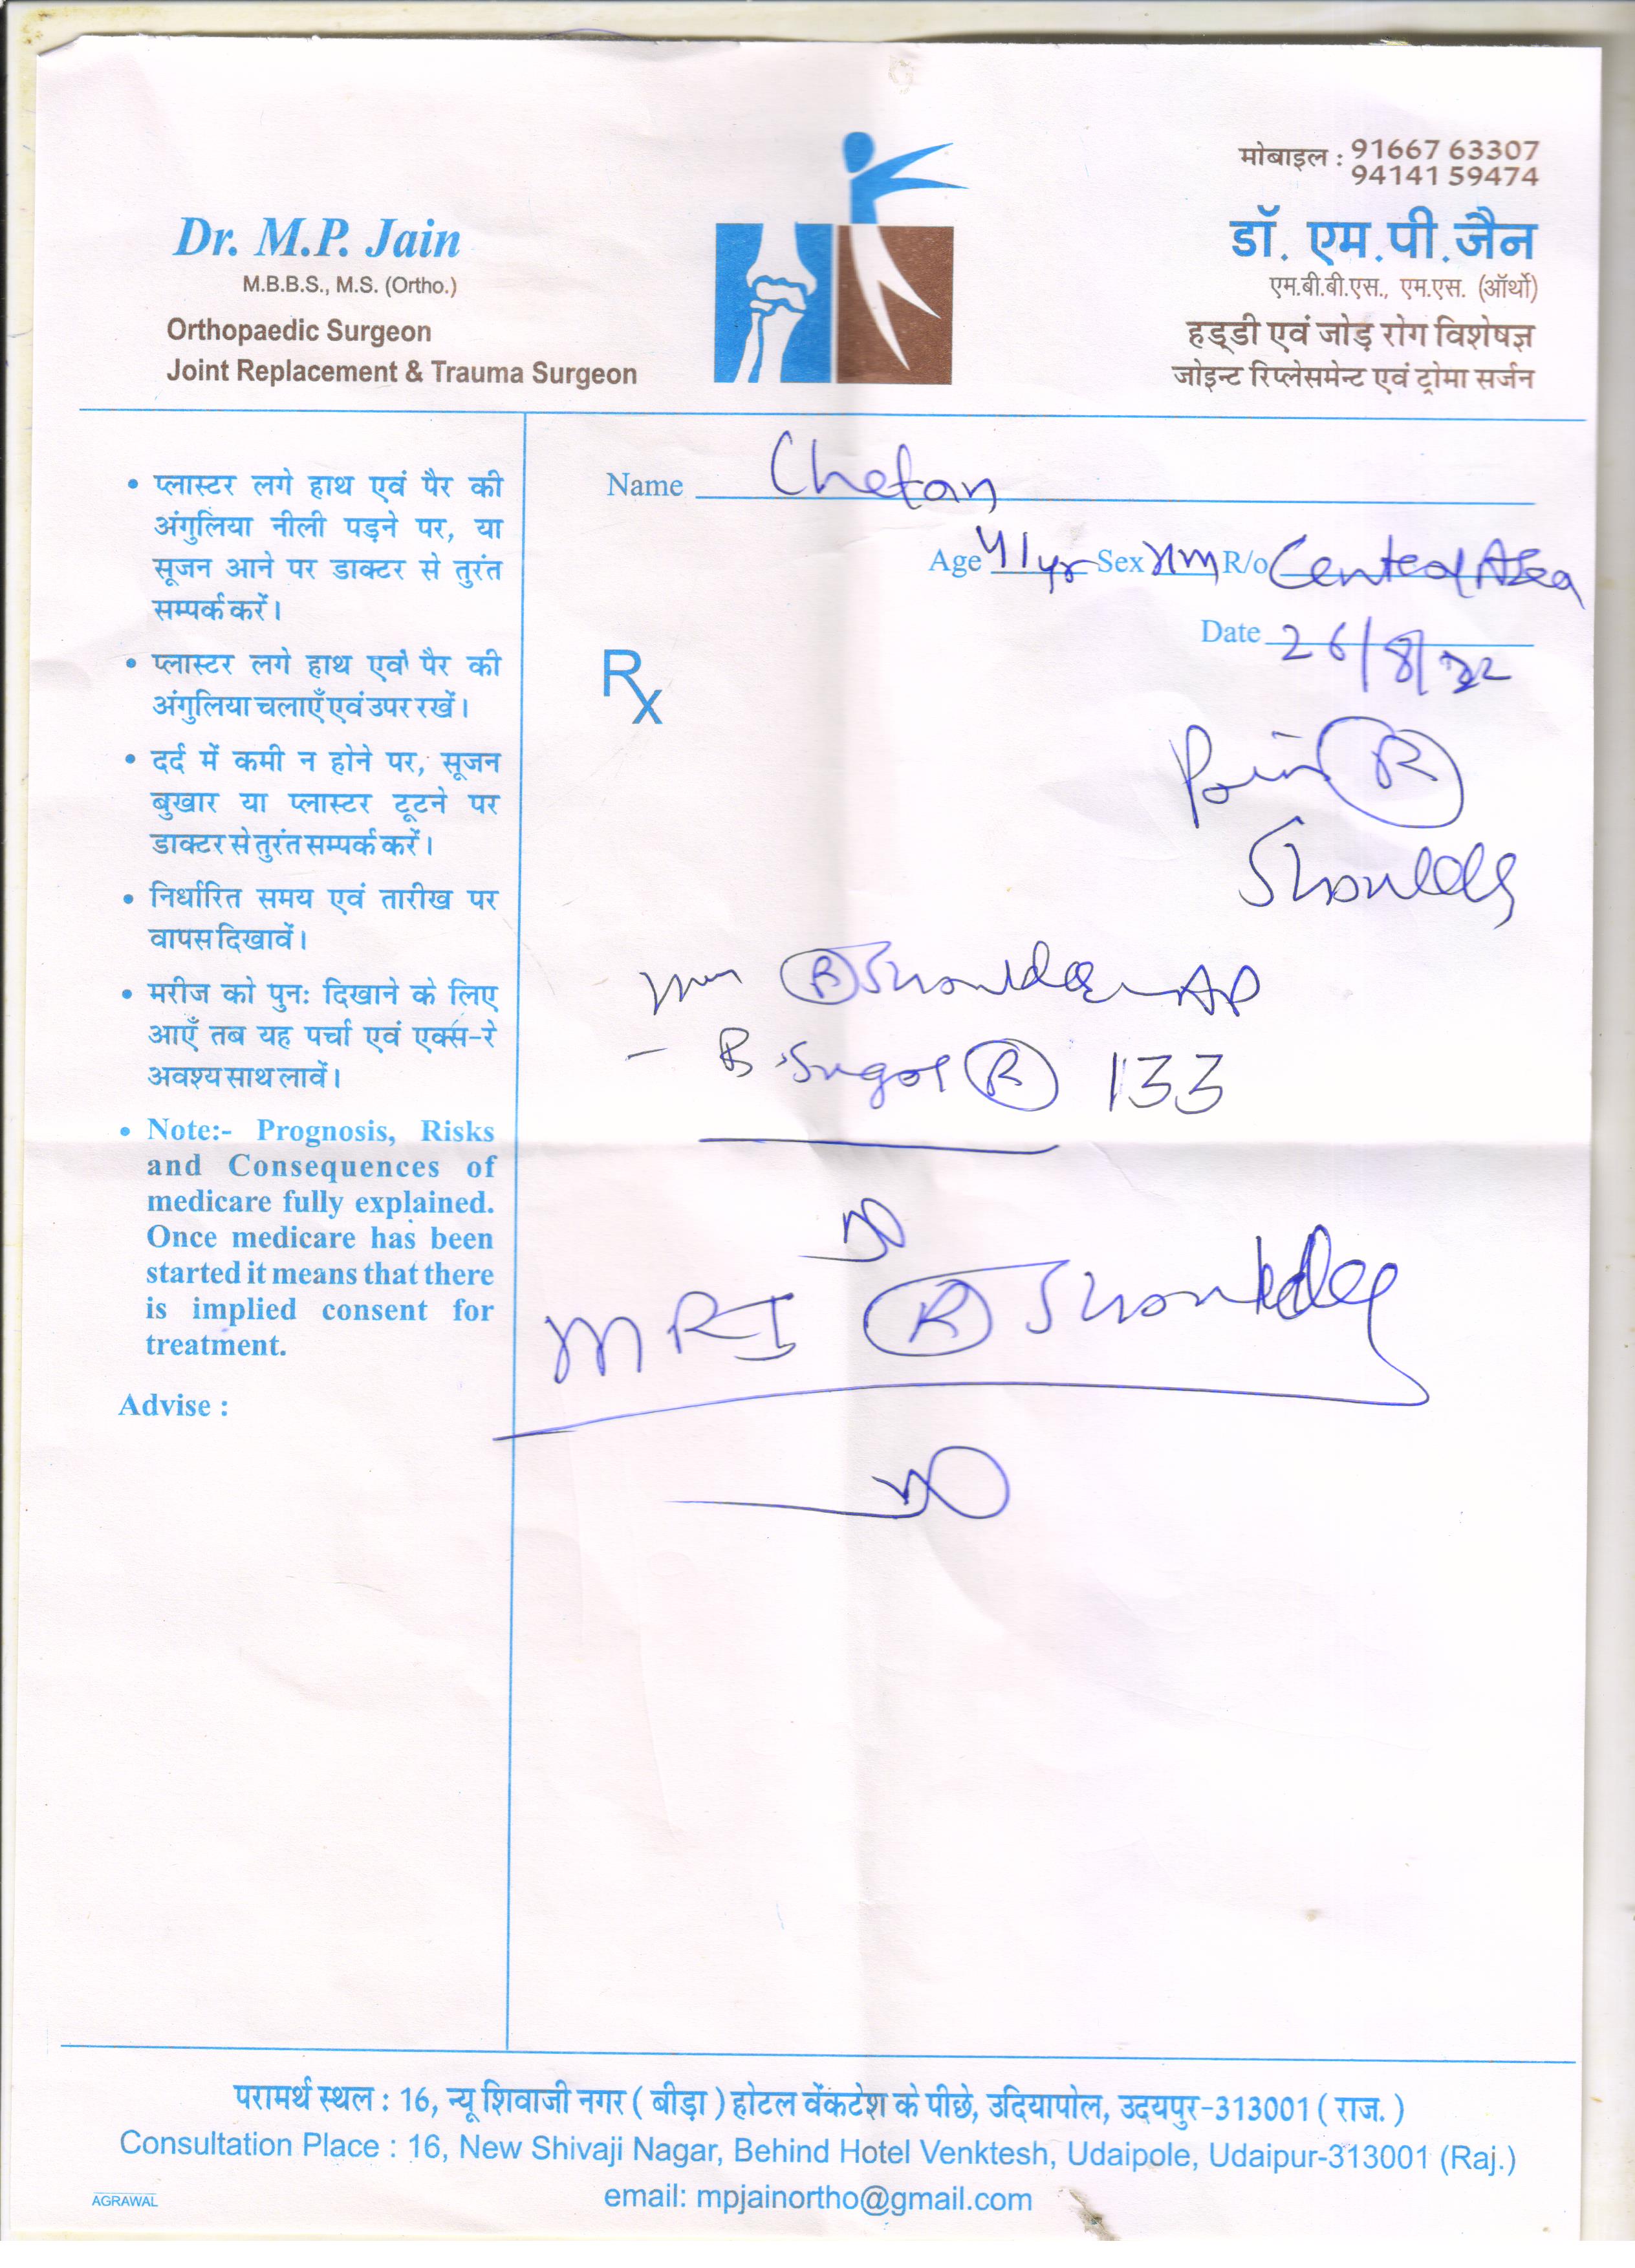 मोबाइल : 91667 63307
94141 59474
Dr. M.P. Jain
M.B.B.S., M.S. (Ortho.)
Orthopaedic Surgeon
Joint Replacement & Trauma Surgeon
डॉ. एम.पी.जैन
एम.बी.बी.एस., एम.एस. (ऑर्थो)
हड्डी एवं जोड़ रोग विशेषज्ञ
जोइन्ट रिप्लेसमेन्ट एवं ट्रोमा सर्जन
• प्लास्टर लगे हाथ एवं पैर की
अंगुलिया नीली पड़ने पर, या
सूजन आने पर डाक्टर से तुरंत
सम्पर्क करें।
• प्लास्टर लगे हाथ एवं पैर की
अंगुलिया चलाएँ एवं उपर रखें।
• दर्द में कमी न होने पर, सूजन
बुखार या प्लास्टर टूटने पर
डाक्टर से तुरंत सम्पर्क करें।
• निर्धारित समय एवं तारीख पर
वापस दिखावें।
• मरीज को पुनः दिखाने के लिए
आएँ तब यह पर्चा एवं एक्स-रे
अवश्य साथ लावें।
• Note:- Prognosis, Risks
and Consequences of
medicare fully explained.
Once medicare has been
started it means that there
is implied consent for
treatment.
Advise :
Name Chetan
Age 41 yr Sex R/o
Date 26/8/22
Rx
Pain R
Shoulder
R Shoulder AP
- B. Sugar R 133
MRI R Shoulder
परामर्थ स्थल : 16, न्यू शिवाजी नगर ( बीड़ा ) होटल वेंकटेश के पीछे, उदियापोल, उदयपुर-313001 ( राज. )
Consultation Place : 16, New Shivaji Nagar, Behind Hotel Venktesh, Udaipole, Udaipur-313001 (Raj.)
email: mpjainortho@gmail.com
AGRAWAL